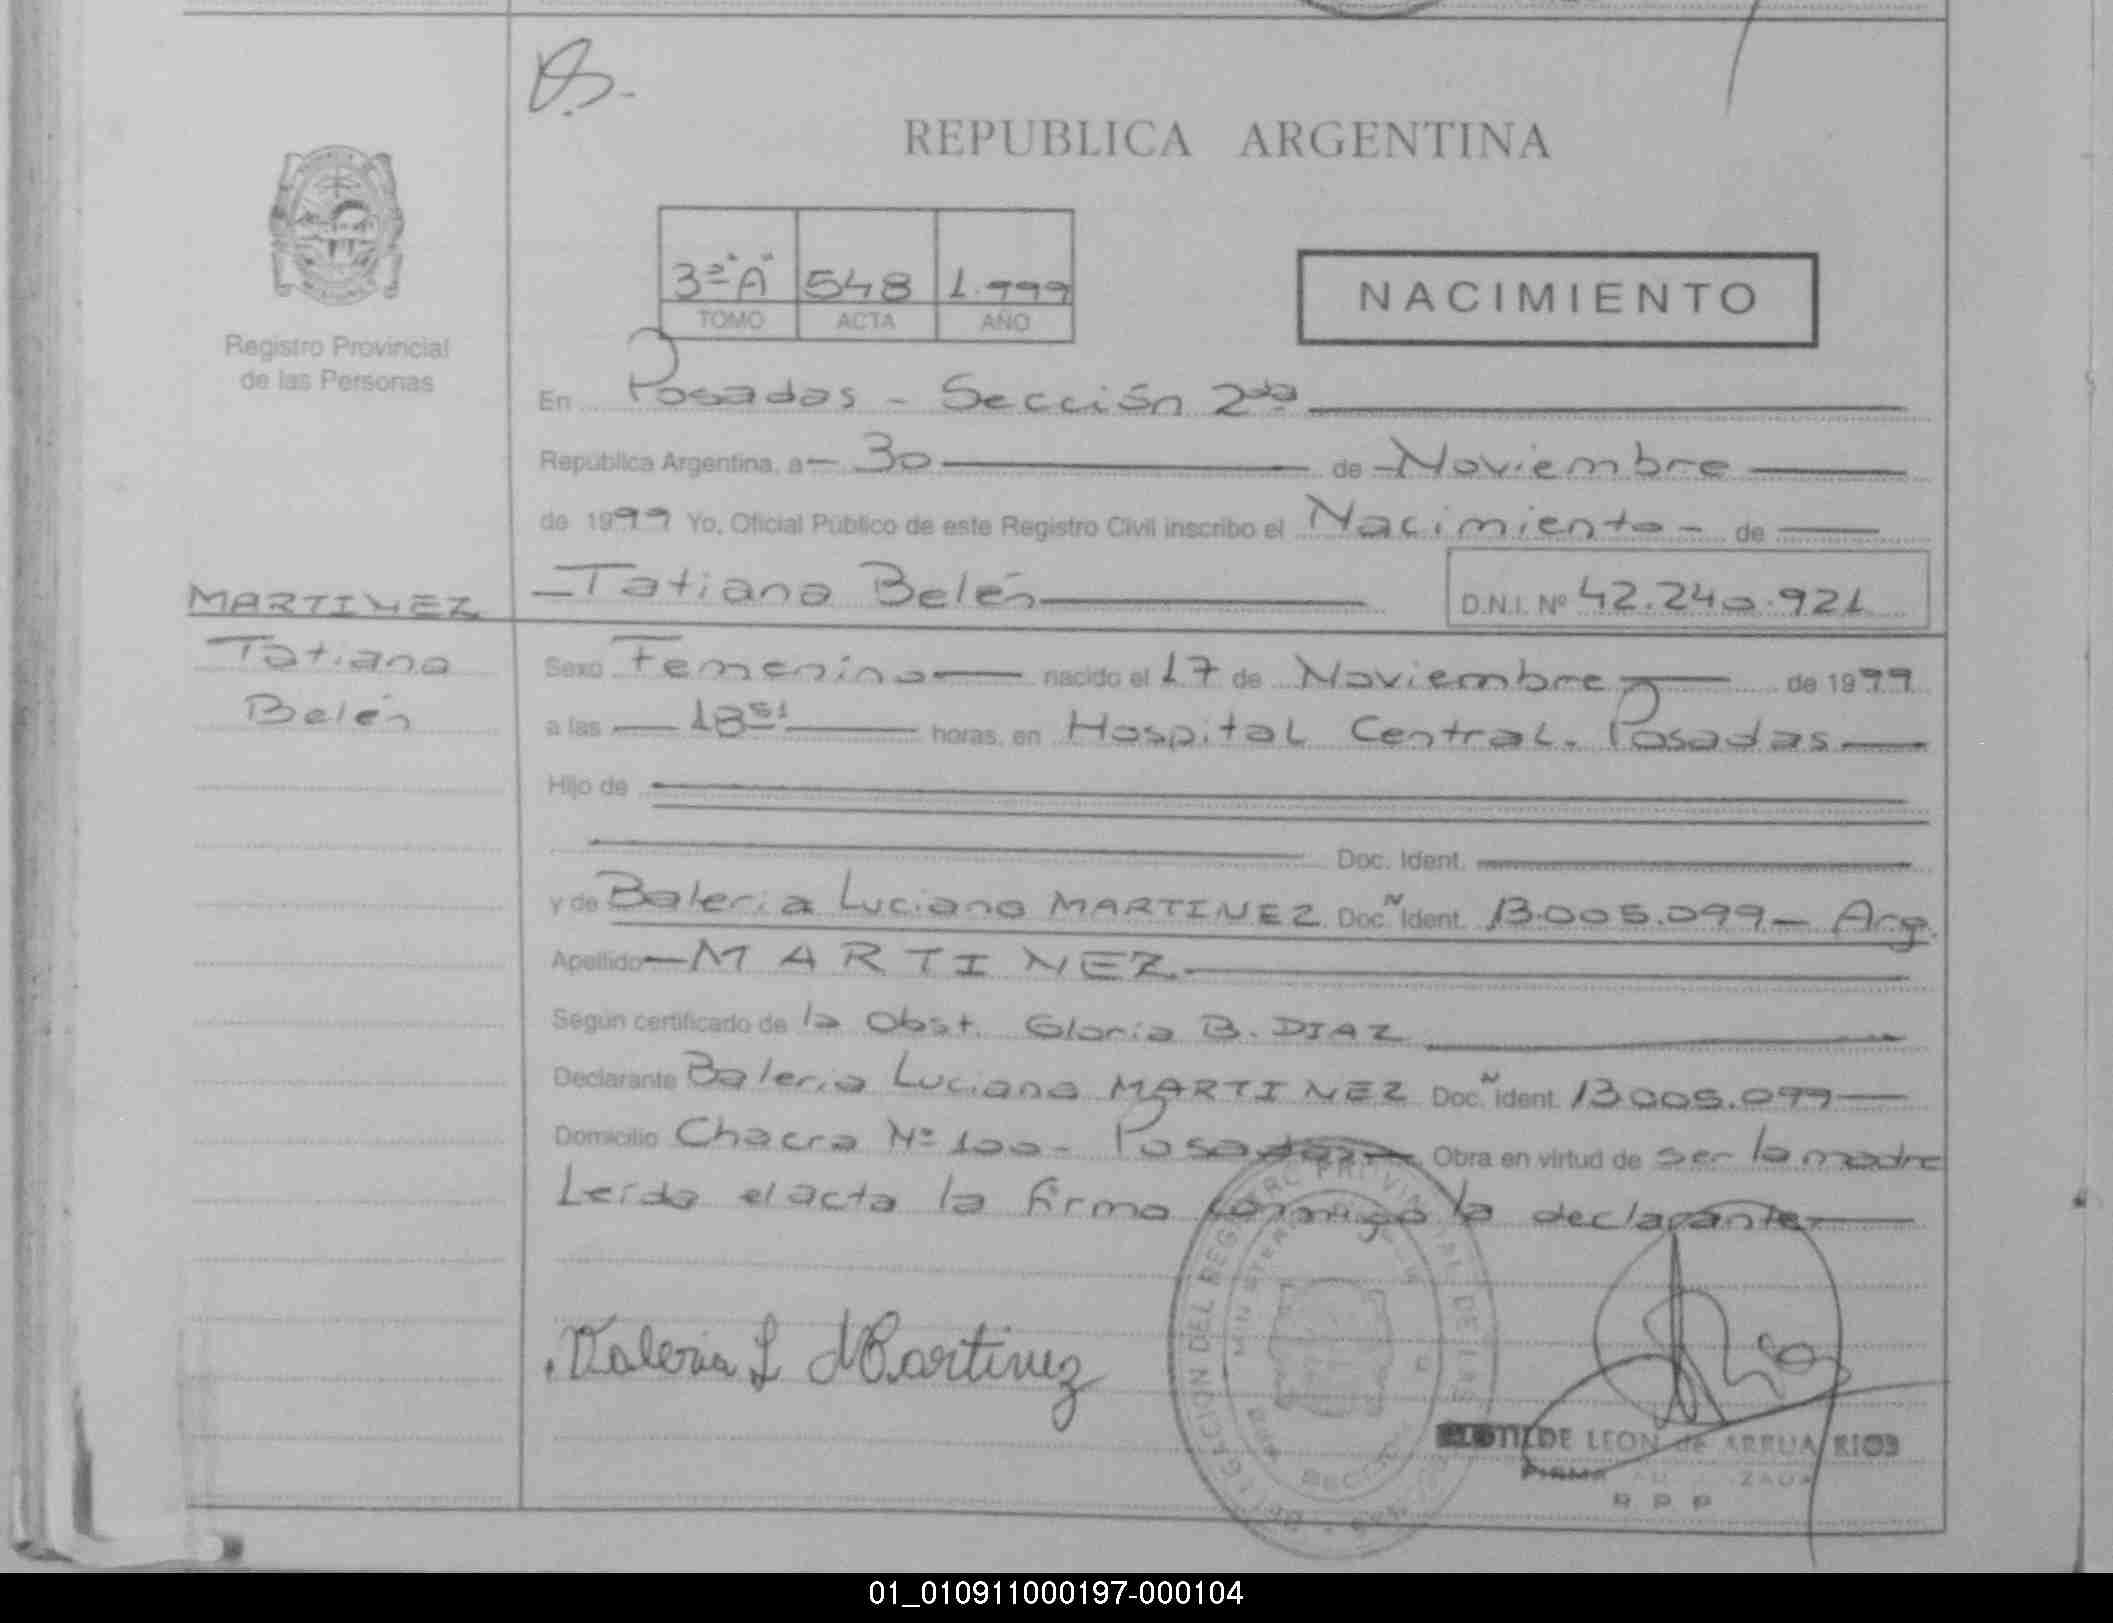 REPUBLICA ARGENTINA
3º "A" 548 1.999
TOMO ACTA AÑO
NACIMIENTO
Registro Provincial
de las Personas
En Posadas - Sección 2da
República Argentina, a - 30 de - Noviembre
de 1999 Yo, Oficial Público de este Registro Civil inscribo el Nacimiento - de
- Tatiana Belén D.N.I. Nº 42.240.921
MARTINEZ
Tatiana
Belén
Sexo Femenino nacido el 17 de Noviembre de 1999
a las 18 51 horas, en Hospital Central. Posadas
Hijo de
Doc. Ident.
y de Baleria Luciana MARTINEZ Doc. Nº Ident. 13.005.099 - Arg.
Apellido - MARTINEZ
Según certificado de la Obst. Gloria B. DIAZ
Declarante Baleria Luciana MARTINEZ Doc. Nº Ident. 13.005.099
Domicilio Chacra Nº 100 - Posadas Obra en virtud de ser la madre
Leída el acta la firma conmigo la declarante
Valeria L Martinez
CLOTILDE LEON de ARRUA RIOS
FIRMA
R P P
01_010911000197-000104